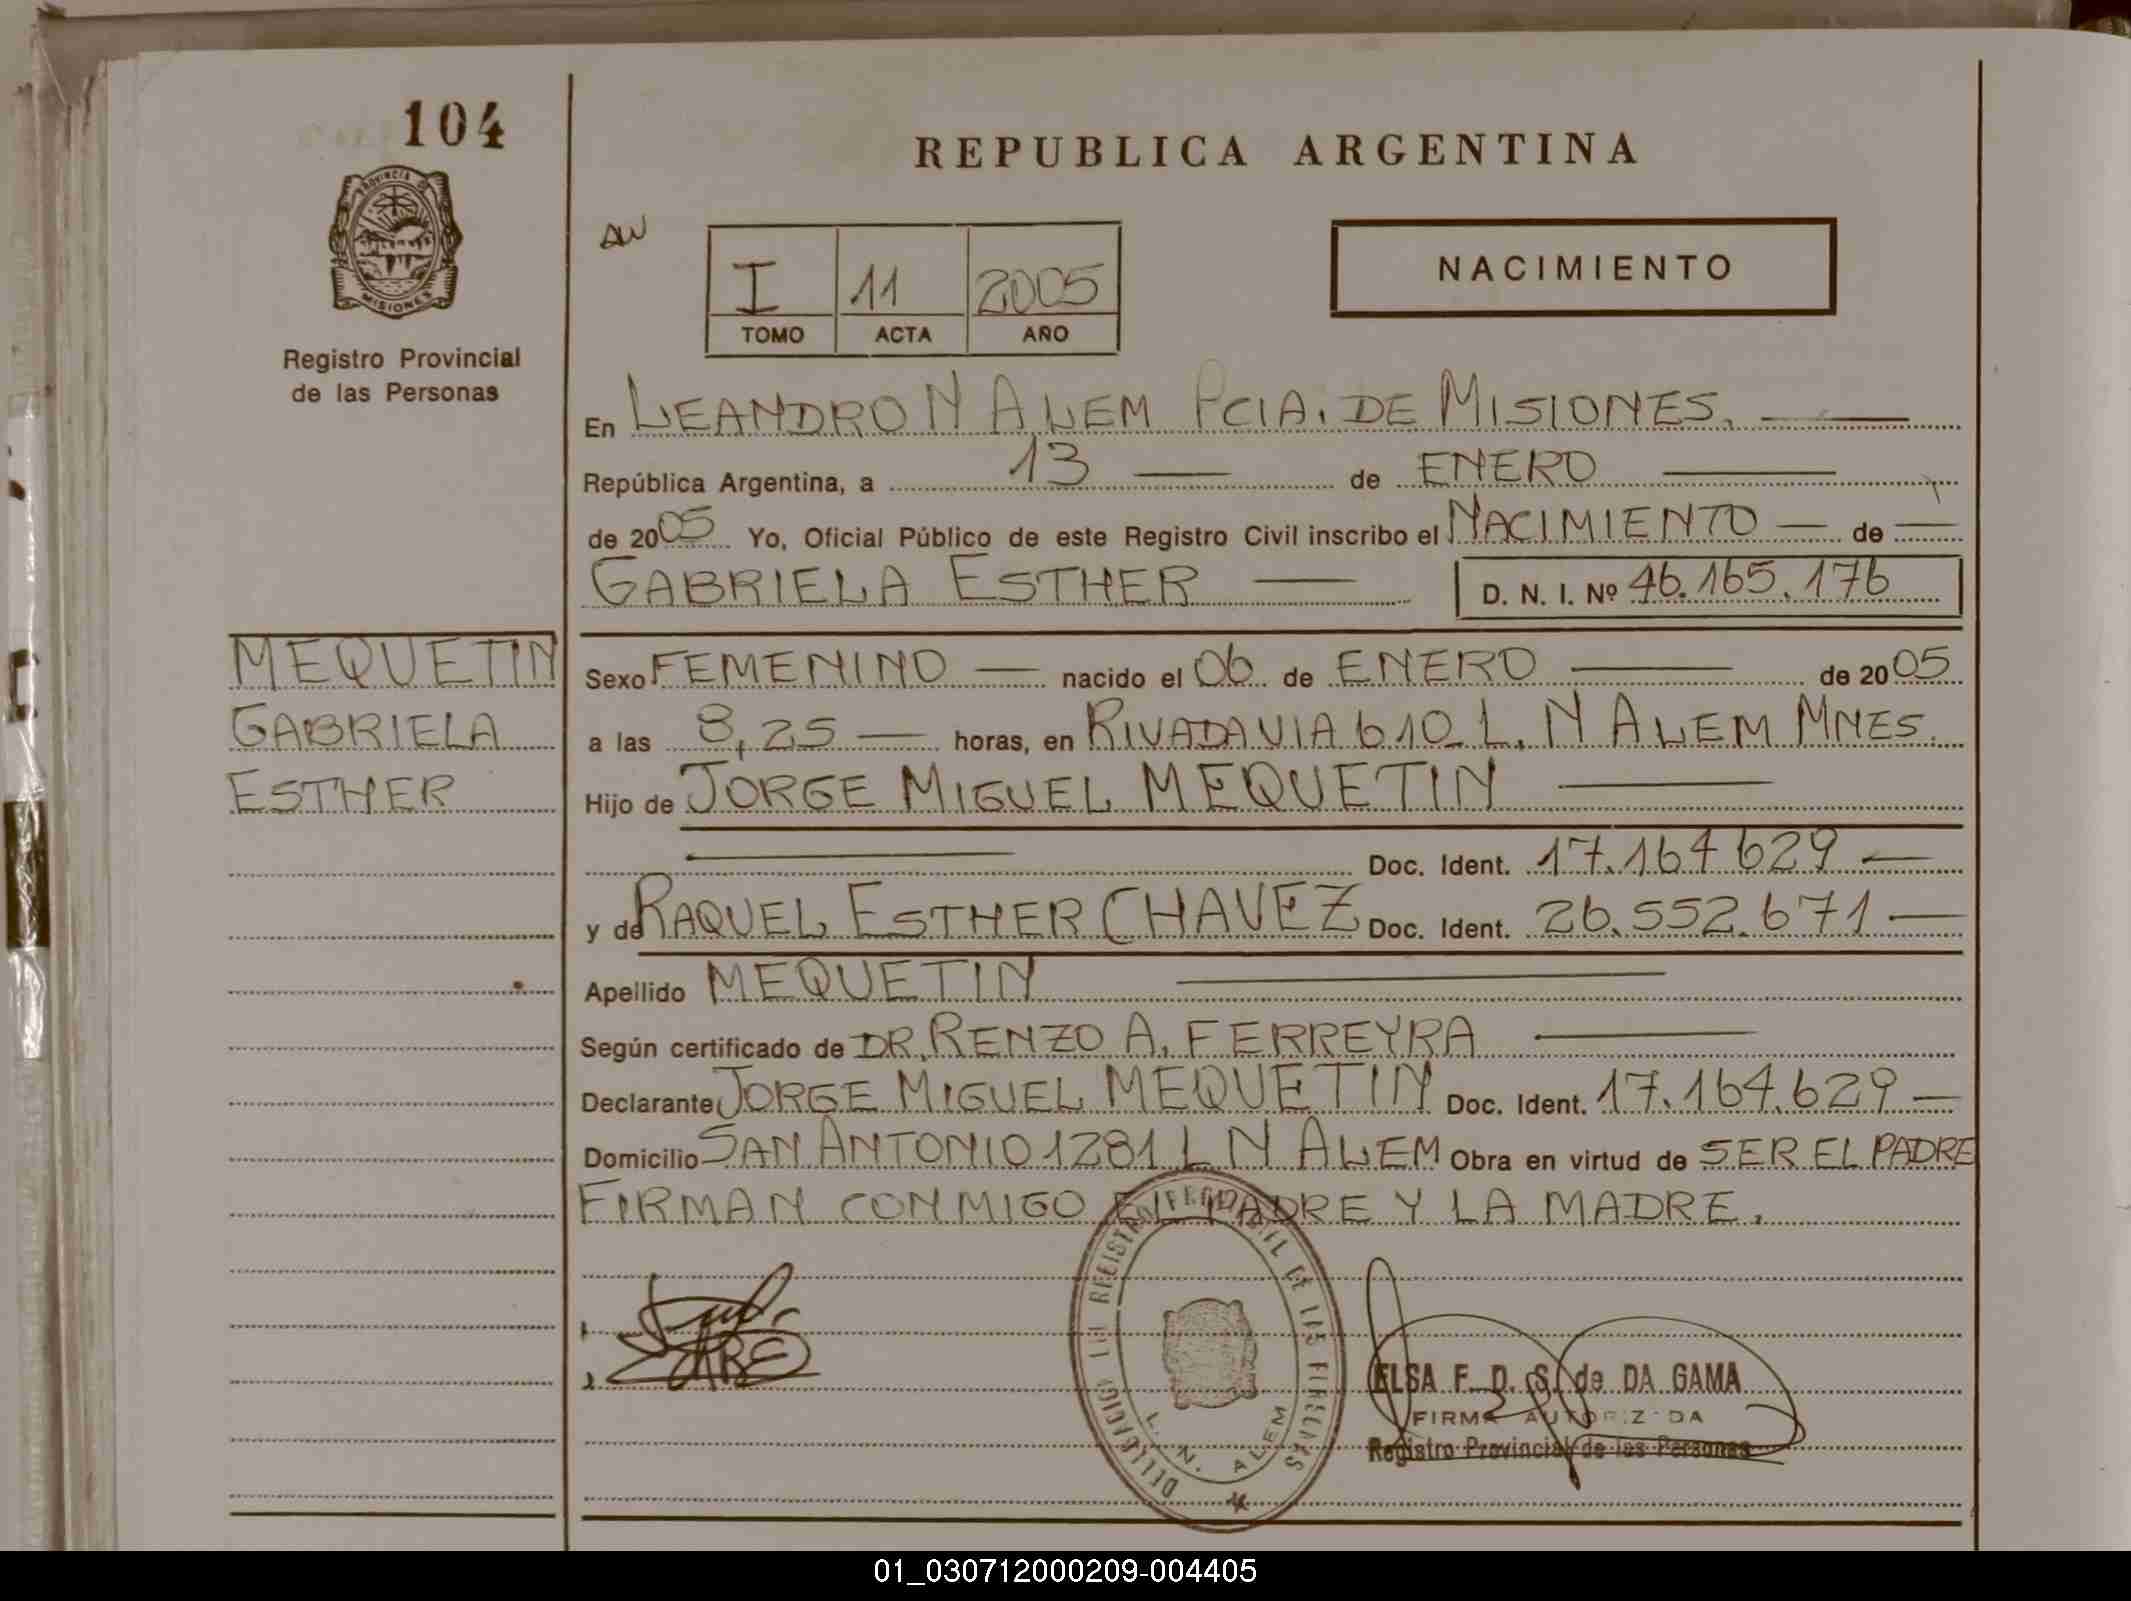 104
PROVINCIA DE
MISIONES
Registro Provincial
de las Personas
REPUBLICA ARGENTINA
AW
I 11 2005
TOMO ACTA AÑO
NACIMIENTO
En LEANDRO N ALEM PCIA. DE MISIONES.
República Argentina, a 13 de ENERO
de 2005 Yo, Oficial Público de este Registro Civil inscribo el NACIMIENTO de
GABRIELA ESTHER D. N. I. Nº 46.165.176
MEQUETIN
GABRIELA
ESTHER
Sexo FEMENINO nacido el 06 de ENERO de 2005
a las 8,25 horas, en RIVADAVIA 610 L. N ALEM MNES.
Hijo de JORGE MIGUEL MEQUETIN
Doc. Ident. 17.164.629
y de RAQUEL ESTHER CHAVEZ Doc. Ident. 26.552.671
Apellido MEQUETIN
Según certificado de DR. RENZO A. FERREYRA
Declarante JORGE MIGUEL MEQUETIN Doc. Ident. 17.164.629
Domicilio SAN ANTONIO 1281 L N ALEM Obra en virtud de SER EL PADRE
FIRMAN CONMIGO EL PADRE Y LA MADRE.
L. N. ALEM
ELSA F. D. S. de DA GAMA
FIRMA AUTORIZADA
Registro Provincial de las Personas
01_030712000209-004405